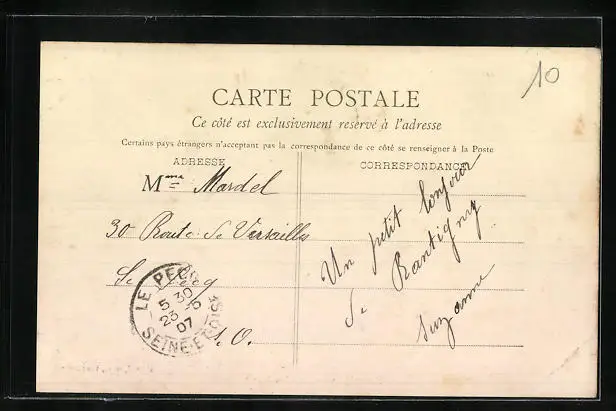 10
CARTE POSTALE
Ce côté est exclusivement réservé à l'adresse
Certains pays étrangers n'acceptant pas la correspondance de ce côté se renseigner à la Poste
ADRESSE
CORRESPONDANCE
Mme Mardel
30 Route de Versailles
Le Pecq
S. O.
LE PECQ
5 30
23 -5
07
SEINE-ET-OISE
Un petit bonjour
de Rantigny
Suzanne